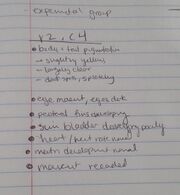 experimental group
r2, C4
• body + tail pigmentation
→ slightly yellow
→ largely clear
→ dark spots, speckling
• eye movent, eyes dark
• pectoral fins developing
• swim bladder developing poorly
• heart / heart rate normal
• development normal
• movent